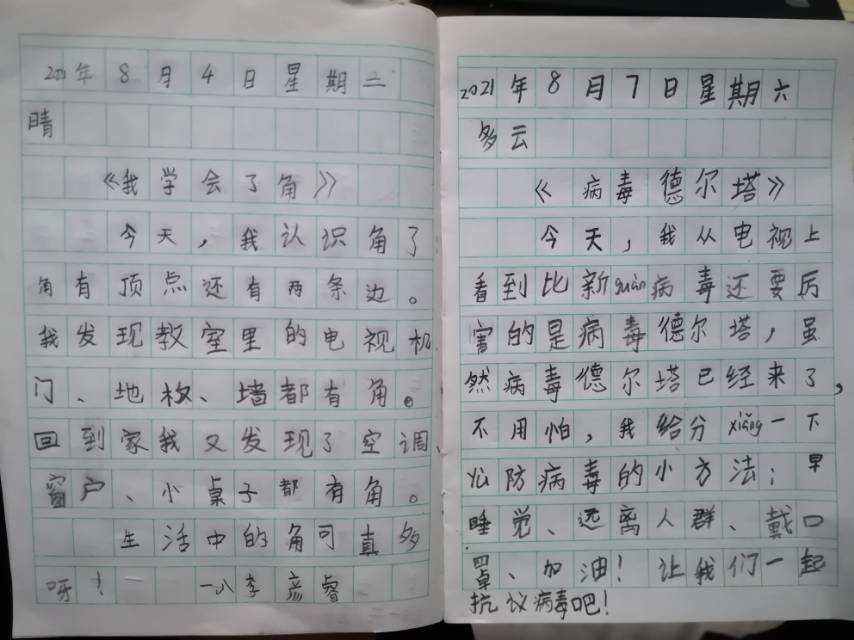 2021年8月4日星期二
晴
《我学会了角》
今天，我认识角了
角有顶点还有两条边。
我发现教室里的电视机
门、地板、墙都有角。
回到家我又发现了空调、
窗户、小桌子都有角。
生活中的角可真多
呀！ 一八李彦睿
2021年8月7日星期六
多云
《病毒德尔塔》
今天，我从电视上
看到比新guān病毒还要厉
害的是病毒德尔塔，虽
然病毒德尔塔已经来了，
不用怕，我给分xiǎng一下
防病毒的小方法；早
睡觉、远离人群、戴口
罩、加油！让我们一起
抗议病毒吧！